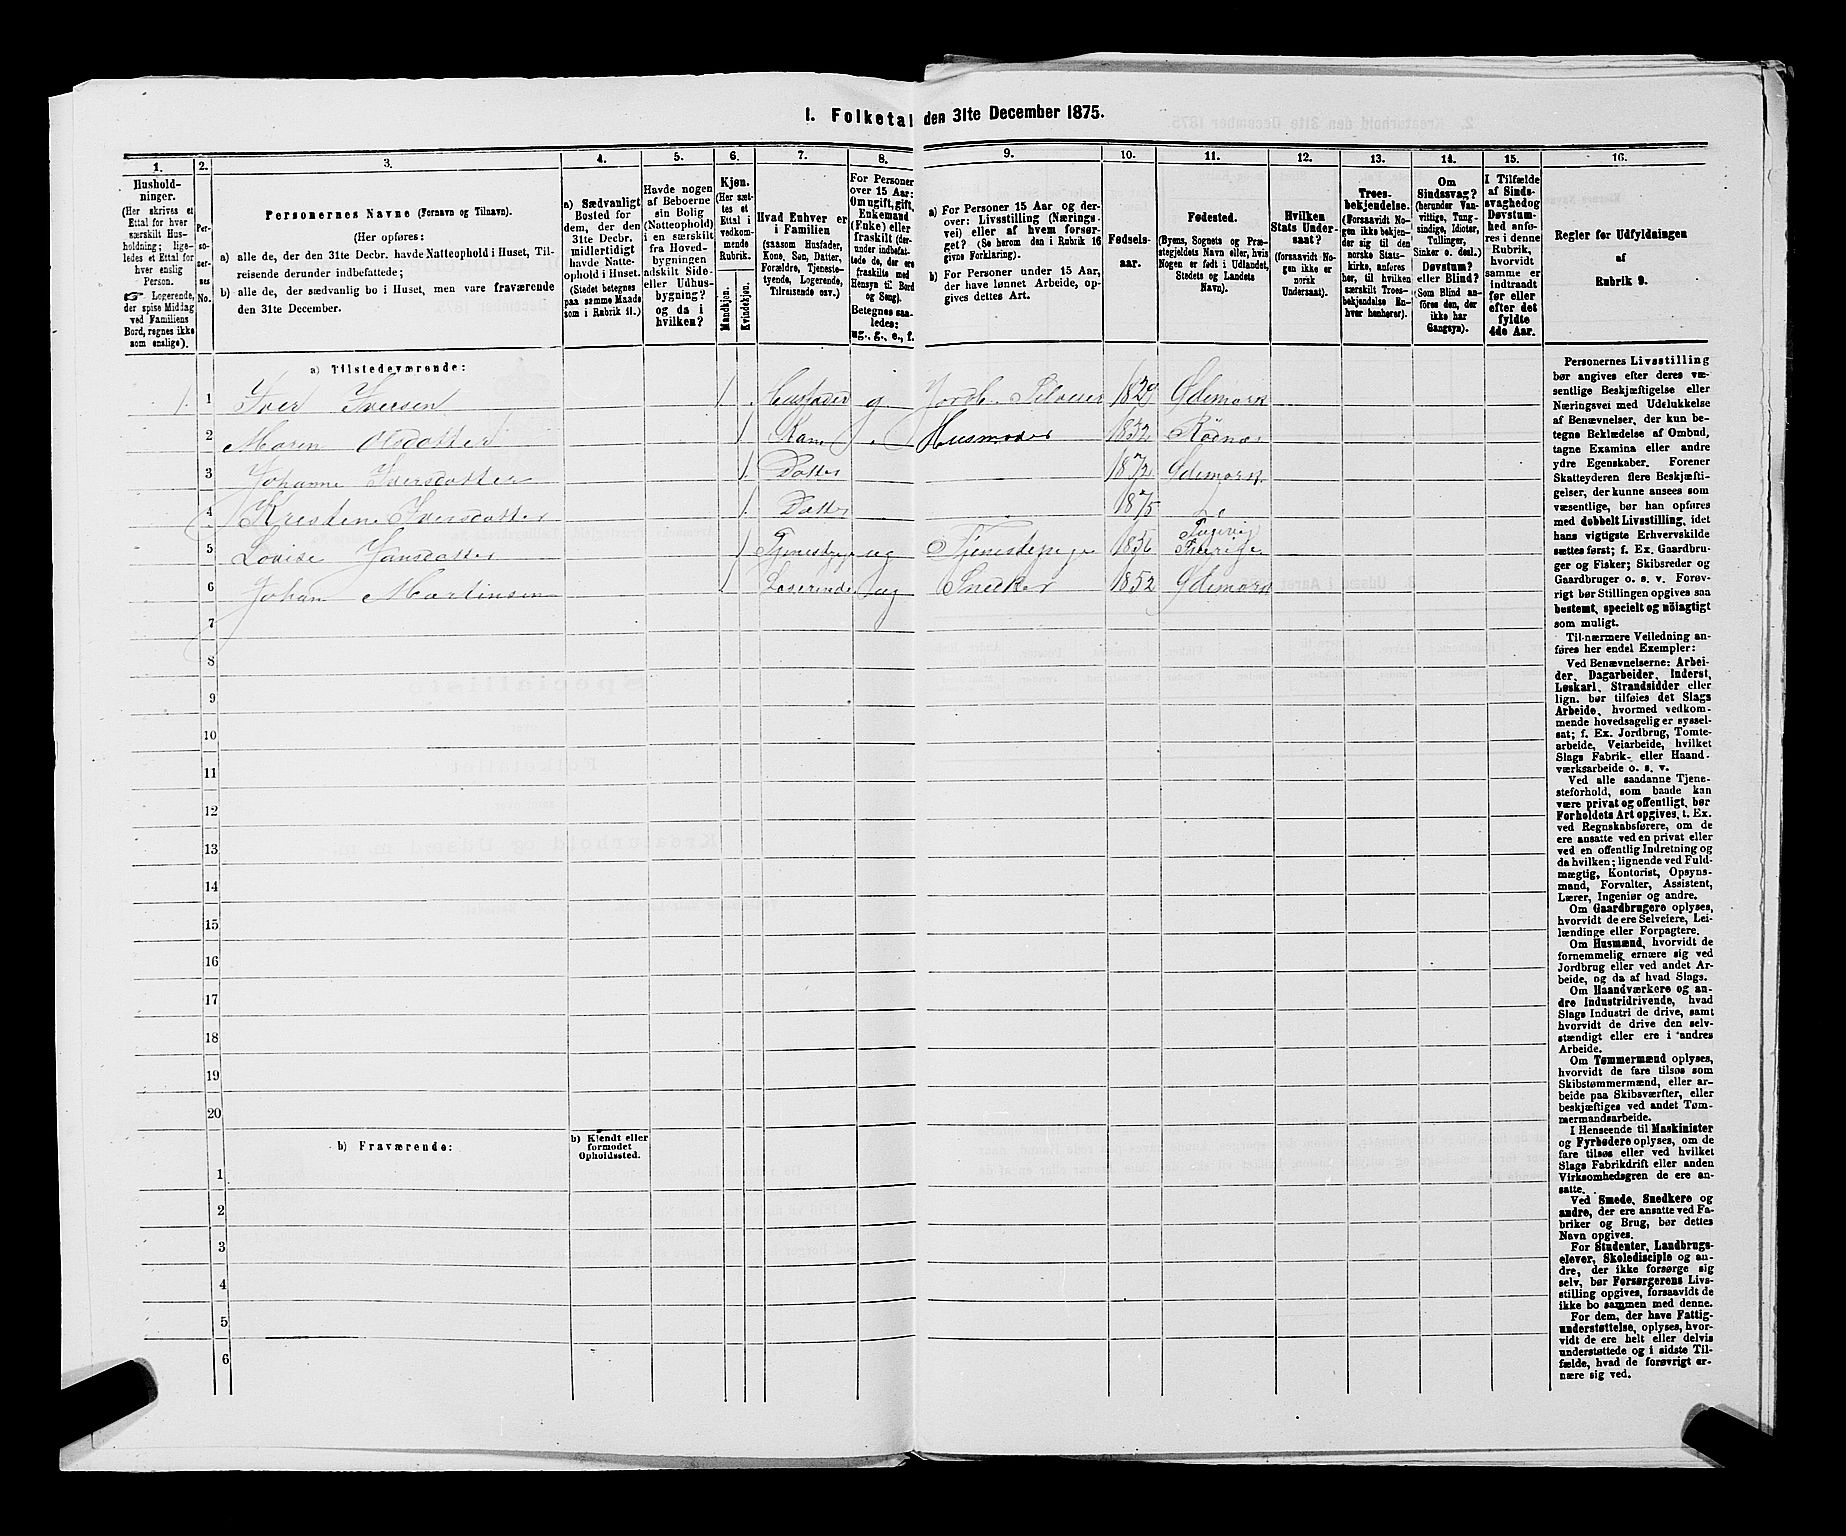 1. Folketal den 31te December 1875.
1.
Hushold-
ninger.
(Her skrives et
Ettal for hver
særskilt Hus-
holdning; lige-
ledes et Ettal for
hver enslig
Person.
☞ Logerende,
der spise Middag
ved Familiens
Bord, regnes ikke
som enslige).
2.
Per-
so-
ner-
nes
No.
3.
Personernes Navne (Fornavn og Tilnavn).
(Her opføres:
a) alle de, der den 31te Decbr. havde Natteophold i Huset, Til-
reisende derunder indbefattede;
b) alle de, der sædvanlig bo i Huset, men vare fraværende
den 31te December.
4.
a) Sædvanligt
Bosted for
dem, der den
31te Decbr.
midlertidigt
havde Natte-
ophold i Huset.
(Stedet betegnes
paa samme Maade
som i Rubrik 11.)
5.
Havde nogen
af Beboerne
sin Bolig
(Natteophold)
i en særskilt
fra Hoved-
bygningen
adskilt Side-
eller Udhus-
bygning?
og da i
hvilken?
6.
Kjøn.
(Her sæt-
tes et
Ettal i
vedkom-
mende
Rubrik.
Mandkjøn.
Kvindekjøn.
7.
Hvad Enhver er
i Familien
(saasom Husfader,
Kone, Søn, Datter,
Forældre, Tjeneste-
tyende, Logerende,
Tilreisende osv.)
8.
For Personer
over 15 Aar:
Om ugift, gift,
Enkemand
(Enke) eller
fraskilt (der-
under indbefat-
tede de, der ere
fraskilte med
Hensyn til Bord
og Seng).
Betegnes saa-
ledes:
ug., g., e., f.
9.
a) For Personer 15 Aar og der-
over: Livsstilling (Nærings-
vei) eller af hvem forsør-
get? (Se herom den i Rubrik 16
givne Forklaring).
b) For Personer under 15 Aar,
der have lønnet Arbeide, op-
gives dettes Art.
10.
Fødsels-
aar.
11.
Fødested.
(Byens, Sognets og Præ-
stegjeldets Navn eller, hvis
Nogen er født i Udlandet,
Stedets og Landets
Navn).
12.
Hvilken
Stats Under-
saat?
(forsaavidt No-
gen ikke er
norsk
Undersaat).
13.
Troes-
bekjendelse.
(Forsaavidt No-
gen ikke bekjen-
der sig til den
norske Stats-
kirke, anføres
her, til hvilken
særskilt Troes-
bekjendelse En-
hver henhører).
14.
Om
Sindssvag?
(herunder Van-
vittige, Tung-
sindige, Idioter,
Tullinger,
Sinker o. desl.)
Døvstum?
eller Blind?
(Som Blind an-
føres den, der
ikke har
Gangsyn).
15.
I Tilfælde
af Sinds-
svaghed og
Døvstum-
hed anfø-
res i denne
Rubrik,
hvorvidt
samme er
indtraadt
før eller
efter det
fyldte
4de Aar.
16.
Regler for Udfyldningen
af
Rubrik 9.
a) Tilstedeværende:
1. 1 Iver Iversen 1. Husfader g Jordb. Selveier 1829 Ødemark
2 Maren Olsdatter 1 Kone Husmoder 1832 Rødnæs
3 Johanne Iversdatter 1. Datter 1872 Ødemark
4 Kristine Iversdatter 1. Datter 1875
5 Lovise Jansdatter 1 Tjenestepige ug Tjenestepige 1856 Sverige
6 Johan Martinsen 1 Logerende ug Snedker 1852 Ødemark
7
8
9
10
11
12
13
14
15
16
17
18
19
20
b) Fraværende:
b) Kjendt eller
formodet
Opholdssted.
1
2
3
4
5
6
Personernes Livsstilling
bør angives efter deres væ-
sentlige Beskjæftigelse eller
Næringsvei med Udelukkelse
af Benævnelser, der kun be-
tegne Beklædelse af Ombud,
tagne Examina eller andre
ydre Egenskaber. Forener
Skatteyderen flere Beskjæfti-
gelser, der kunne ansees som
væsentlige, bør han opføres
med dobbelt Livsstilling, idet
hans vigtigste Erhvervskilde
sættes først; f. Ex. Gaardbru-
ger og Fisker; Skibsreder og
Gaardbruger o. s. v. Forøv-
rigt bør Stillingen opgives saa
bestemt, specielt og nöiagtigt
som muligt.
Til nærmere Veiledning an-
føres her endel Exempler:
Ved Benævnelserne: Arbei-
der, Dagarbeider, Inderst,
Løskarl, Strandsidder eller
lign. bør tilføies det Slags
Arbeide, hvormed vedkom-
mende hovedsagelig er syssel-
sat; f. Ex. Jordbrug, Tomte-
arbeide, Veiarbeide, hvilket
Slags Fabrik- eller Haand-
værksarbeide o. s. v.
Ved alle saadanne Tjene-
steforhold, som baade kan
være privat og offentligt, bør
Forholdets Art opgives, t. Ex.
ved Regnskabsførere, om de
ere ansatte ved en privat eller
ved en offentlig Indretning og
da hvilken; lignende ved Fuld-
mægtig, Kontorist, Opsyns-
mand, Forvalter, Assistent,
Lærer, Ingeniør og andre.
Om Gaardbrugere oplyses,
hvorvidt de ere Selveiere, Lei-
lændinge eller Forpagtere.
Om Husmænd, hvorvidt de
fornemmelig ernære sig ved
Jordbrug eller ved andet Ar-
beide, og da af hvad Slags.
Om Haandværkere og an-
dre Industridrivende, hvad
Slags Industri de drive, samt
hvorvidt de drive den selv-
stændigt eller ere i andres
Arbeide.
Om Tømmermænd oplyses,
hvorvidt de fare tilsøs som
Skibstømmermænd, eller ar-
beide paa Skibsværfter, eller
beskjæftiges ved andet Tøm-
mermandsarbeide.
I Henseende til Maskinister
og Fyrbødere oplyses, om de
fare tilsøs eller ved hvilket
Slags Fabrikdrift eller anden
Virksomhedsgren de ere an-
satte.
Ved Smede, Snedkere og
andre, der ere ansatte ved Fa-
briker og Brug, bør dettes
Navn opgives.
For Studenter, Landbrugs-
elever, Skoledisciple og an-
dre, der ikke forsørge sig
selv, bør Forsørgerens Livs-
stilling opgives, forsaavidt de
ikke bo sammen med denne.
For dem, der have Fattig-
understøttelse, oplyses, hvor-
vidt de ere helt eller delvis
understøttede og i sidste Til-
fælde, hvad de forøvrigt er-
nære sig ved.